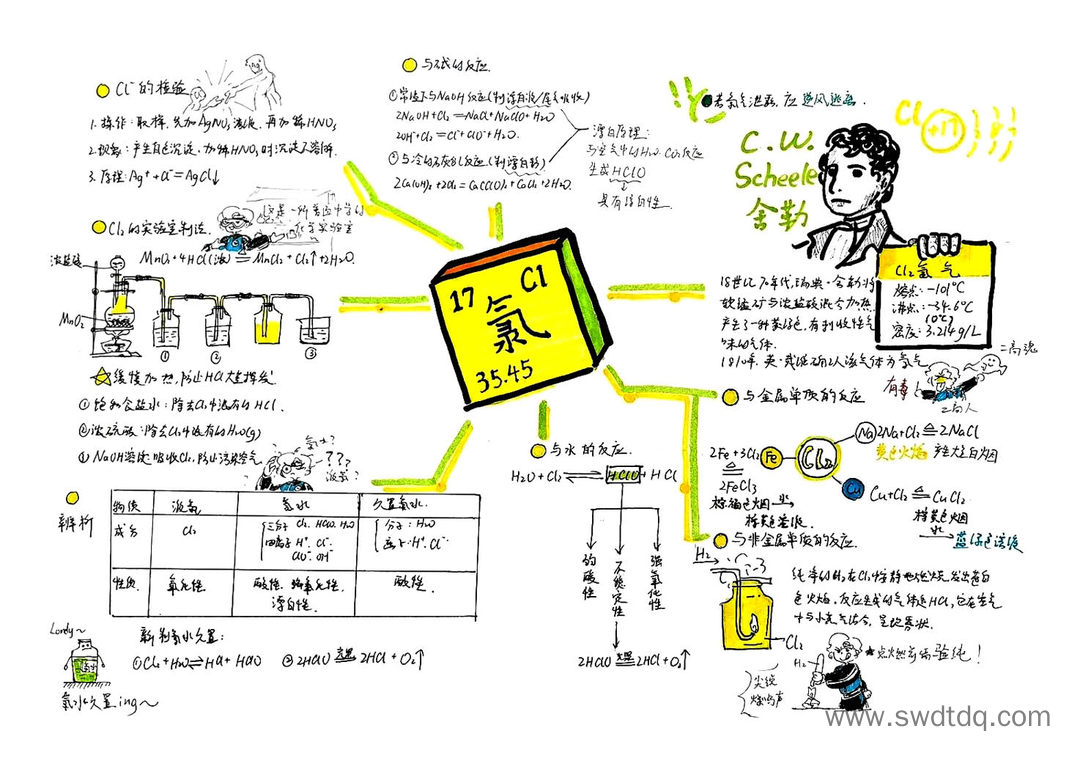 Cl⁻的检验
1. 操作：取样，先加AgNO₃溶液，再加稀HNO₃
2. 现象：产生白色沉淀，加稀HNO₃时沉淀不溶解.
3. 原理：Ag⁺+Cl⁻=AgCl↓
Cl₂的实验室制法.
这是一所普通中学的
化学实验室
MnO₂+4HCl(浓)=MnCl₂+Cl₂↑+2H₂O.
浓盐酸
MnO₂
① ② ③
缓慢加热,防止HCl大量挥发
①饱和食盐水：除去Cl₂中混有的HCl.
②浓硫酸：除去Cl₂中混有的H₂O(g)
①NaOH溶液:吸收Cl₂,防止污染空气
与碱的反应.
①常温下与NaOH反应(制漂白液/尾气吸收)
2NaOH+Cl₂=NaCl+NaClO+H₂O
2OH⁻+Cl₂=Cl⁻+ClO⁻+H₂O.
①与冷的石灰乳反应(制漂白粉)
2Ca(OH)₂+2Cl₂=Ca(ClO)₂+CaCl₂+2H₂O.
漂白原理：
与空气中的H₂O、CO₂反应
生成HClO
具有漂白性.
若氯气泄露,应逆风逃离.
C.W.
Scheele
舍勒
Cl +17
Cl₂氯气
熔点:-101°C
沸点:-34.6°C
(0°C)
密度:3.214g/L
18世纪70年代,瑞典·舍勒将
软锰矿与浓盐酸混合加热
产生了一种黄绿色,有刺激性气
味的气体.
1810年,英·戴维确认该气体为氯气
17 Cl
氯
35.45
二高魂
有毒
二高人
与金属单质的反应
Na 2Na+Cl₂≜2NaCl
黄色火焰 产生白烟
2Fe+3Cl₂ Fe Cl₂
≜
2FeCl₃
棕褐色烟
棕黄色溶液.
Cu Cu+Cl₂≜CuCl₂
棕黄色烟
蓝绿色溶液
与水的反应.
H₂O+Cl₂⇌HClO+HCl
弱酸性
不稳定性
强氧化性
2HClO=光照=2HCl+O₂↑
与非金属单质的反应.
H₂
Cl₂
纯净的H₂在Cl₂中安静地燃烧,发出苍白
色火焰,反应生成的气体是HCl,它在空气
中与水蒸气结合,呈现雾状.
点燃前需验纯!
H₂
尖锐
爆鸣声
氯水?
???
液氯?
辨析
物质 液氯 氯水 久置氯水.
成分 Cl₂ 三分子 Cl₂. HClO. H₂O 分子：H₂O
四离子 H⁺. Cl⁻. 离子：H⁺. Cl⁻.
ClO⁻. OH⁻
性质. 氧化性 酸性. 强氧化性. 酸性
漂白性.
Lonely~
新制氯水久置：
①Cl₂+H₂O⇌HCl+HClO ②2HClO=光照=2HCl+O₂↑
氯水久置ing~
www.swdtdq.com